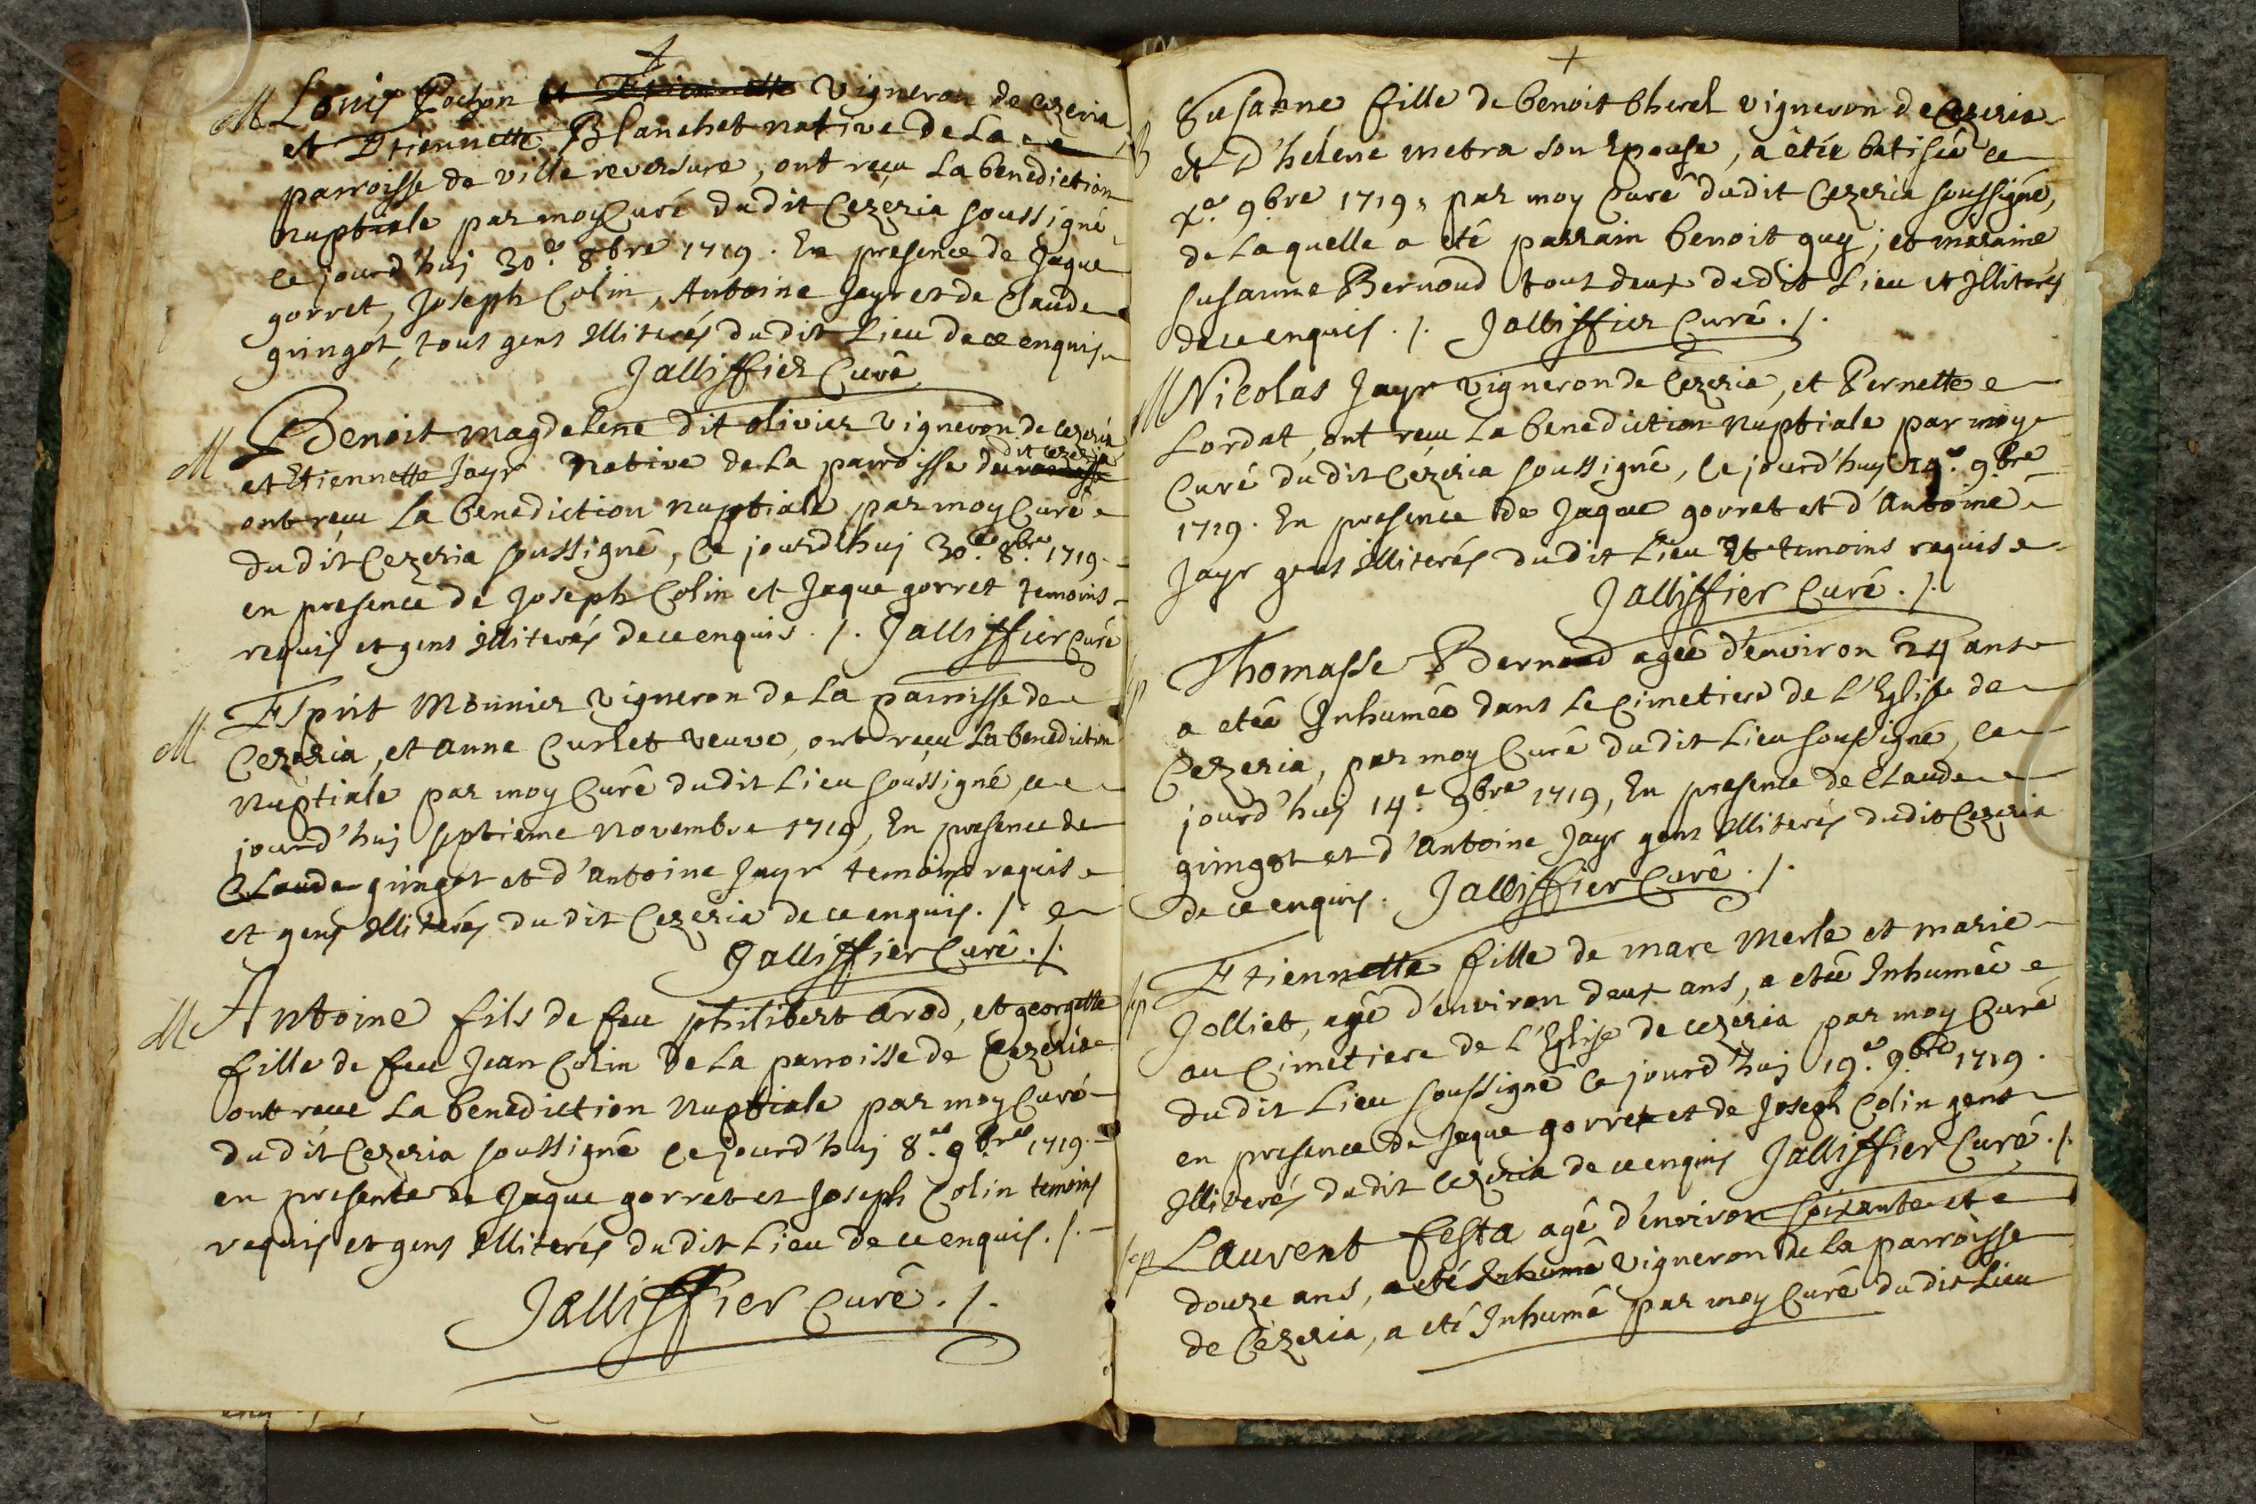 M Louis Pochon et Etiennette Vigneron de cezeria
et Etiennette Blanchet native de La
parroisse de ville reversure, ont reçu La benediction
nuptiale par moy Curé dudit Cezeria soussigné
ce jourd'huj 30.e 8.bre 1719. En presence de Jaque
gorret, Joseph Colin, Antoine Jayr et de Claude
gringot, tous gens Illiterés dudit Lieu de ce enquis
Jalliffier Curé
M Benoit magdelene dit olivier vigneron de cezeria
et Etiennette Jayr Native de La parroisse du dit cezeria
ont reçu La benediction nuptiale par moy Curé
dudit Cezeria soussigné, Ce jourd'huj 30.e 8.bre 1719.
en presence de Joseph Colin et Jaque gorret temoins
requis et gens Illiterés de ce enquis ./. Jalliffier Curé
M Esprit Monnier Vigneron de La parroisse de
Cezeria, et anne Curlet veuve, ont reçu La benediction
Nuptiale par moy Curé dudit Lieu soussigné, ce
jourd'huj septieme Novembre 1719, En presence de
Claude gringot et d'antoine Jayr temoins requis
et gens Illiterés du dit Cezeria de ce enquis ./.
Jalliffier Curé ./.
M Antoine fils de feu philibert arod, et georgette
fille de feu Jean Colin de La parroisse de Cezeria
ont receu La benediction Nuptiale par moy Curé
du dit Cezeria soussigné Ce jourd'huj 8.e 9.bre 1719.
en presence de Jaque gorret et Joseph Colin temoins
requis et gens Illiterés du dit Lieu de ce enquis ./.
Jalliffier Curé ./.
B Susanne fille de benoit Cherel vigneron de Cezeria
et d'helene metra son Epouse, a êtée batisée ce
9.bre 1719, par moy Curé dudit Cezeria soussigné,
de Laquelle a eté parrain benoit guy; et maraine
susanne Bernoud tous deux dudit Lieu et Illiterés
de ce enquis ./. Jalliffier Curé ./.
M Nicolas Jayr vigneron de Cezeria, et Pernette
Lordat, ont reçu La benediction Nuptiale par moy
Curé du dit Cezeria soussigné, Ce jourd'huy 9.bre
1719. En presence de Jaque gorret et d'Antoine
Jayr gens Illiterés dudit Lieu Et temoins requis
Jalliffier Curé ./.
Sep Thomasse Bernoud agée d'environ ans
a etée Inhumée dans Le Cimetiere de L'Eglise de
Cezeria, par moy Curé du dit Lieu soussigné, ce
jourd'huj 14.e 9.bre 1719, En presence de Claude
gringot et d'Antoine Jayr gens Illiterés dudit Cezeria
de ce enquis. Jalliffier Curé ./.
Sep Etiennette fille de marc Merle et marie
Jolliet, agé d'environ deux ans, a etée Inhumée
au Cimetiere de L'Eglise de cezeria par moy Curé
du dit Lieu soussigné ce jourd'huj 19.e 9.bre 1719.
en presence de Jaque gorret et de Joseph Colin gens
Illiterés du dit Cezeria de ce enquis Jalliffier Curé ./.
Sep Laurent festa agé d'environ soixante et
douze ans, a eté Inhumé Vigneron de La parroisse
de Cezeria, a eté Inhumé par moy Curé du dit Lieu